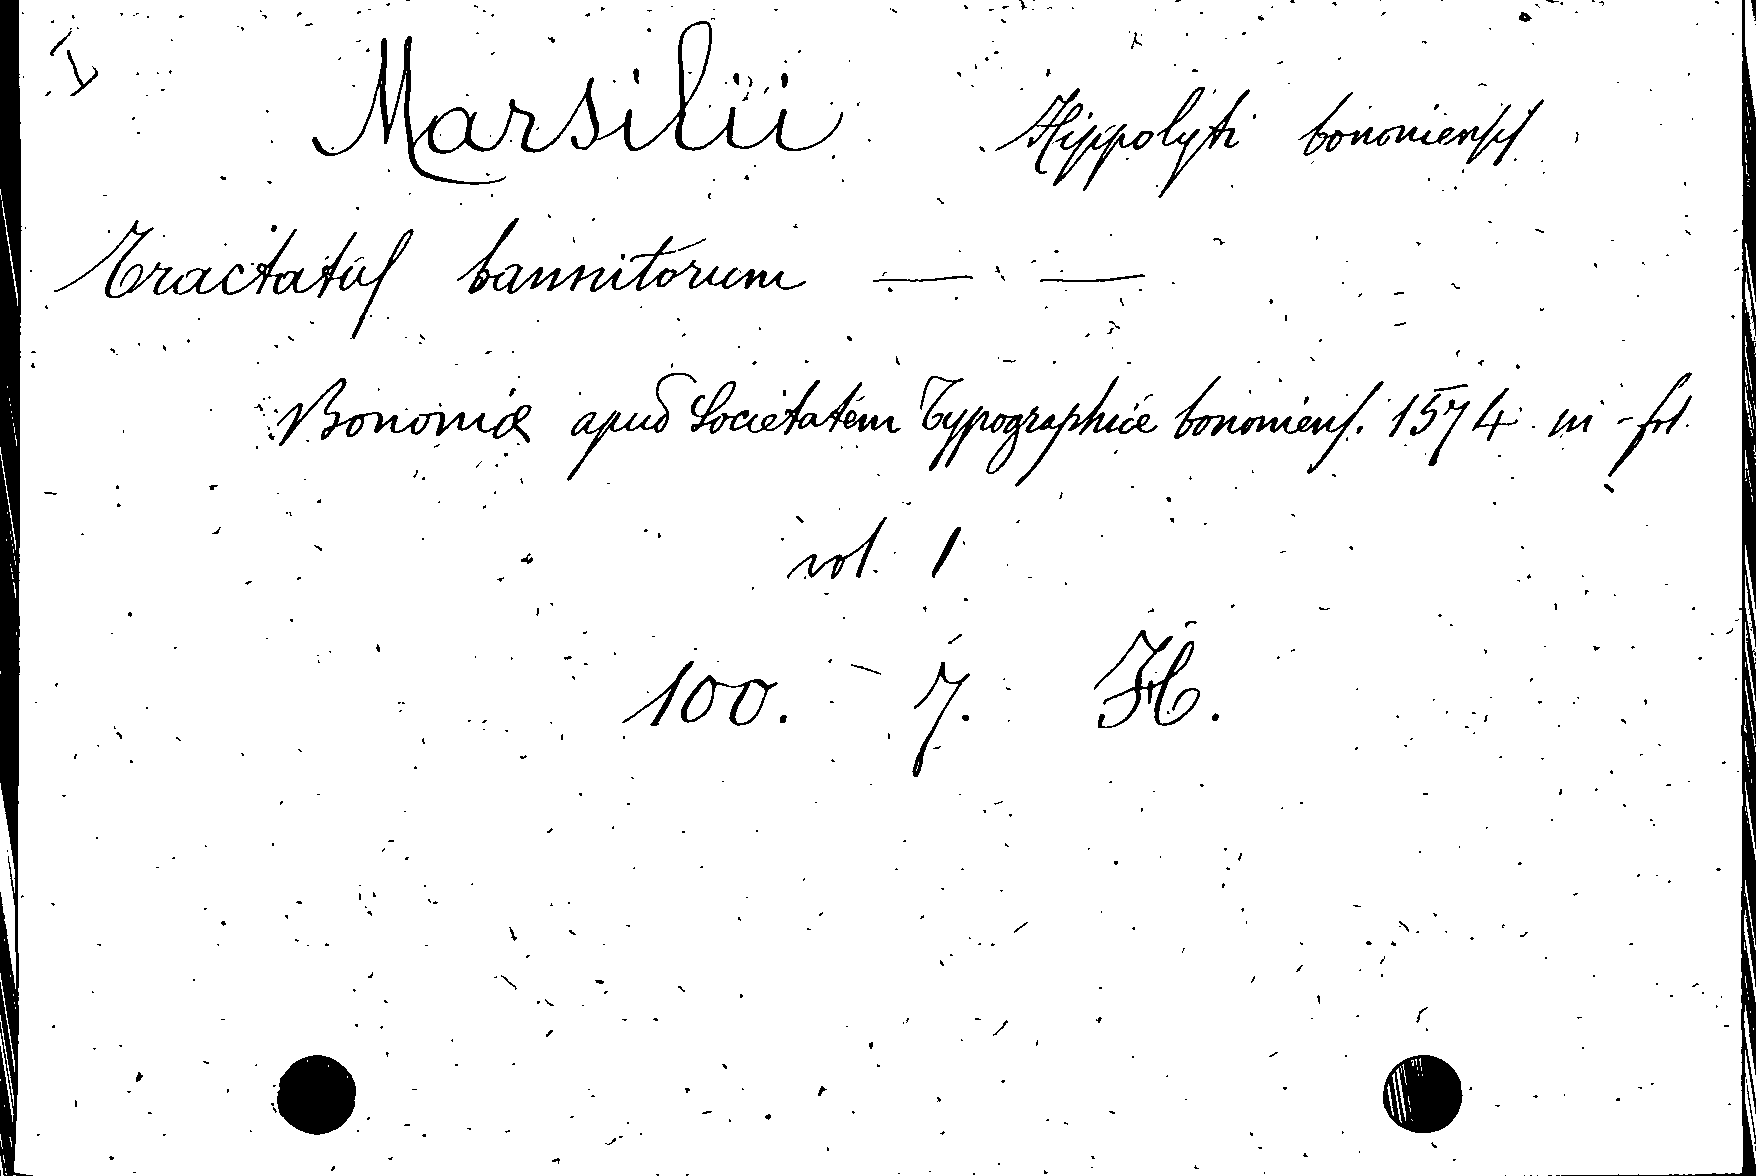 I
Marsilii Hippolyti bononiensis
Tractatus bannitorum — —
Bononiæ apud Societatem Typographiæ bononiens. 1574 in-fol.
vol. 1
100. 7. H.